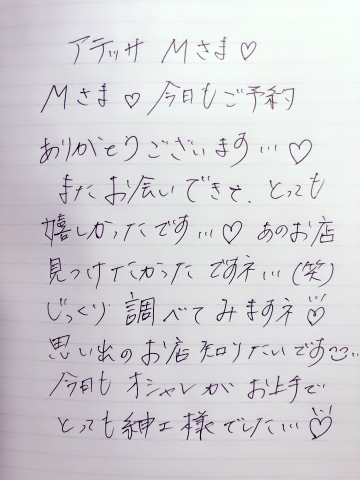 アテッサ Mさま♡
Mさま♡今日もご予約
ありがとうございます…♡
またお会いできて、とっても
嬉しかったです…♡ あのお店
見つけたかったですネ…(笑)
じっくり調べてみますネ♡
思い出のお店知りたいです…
今日もオシャレがお上手で
とっても紳士様でした…♡